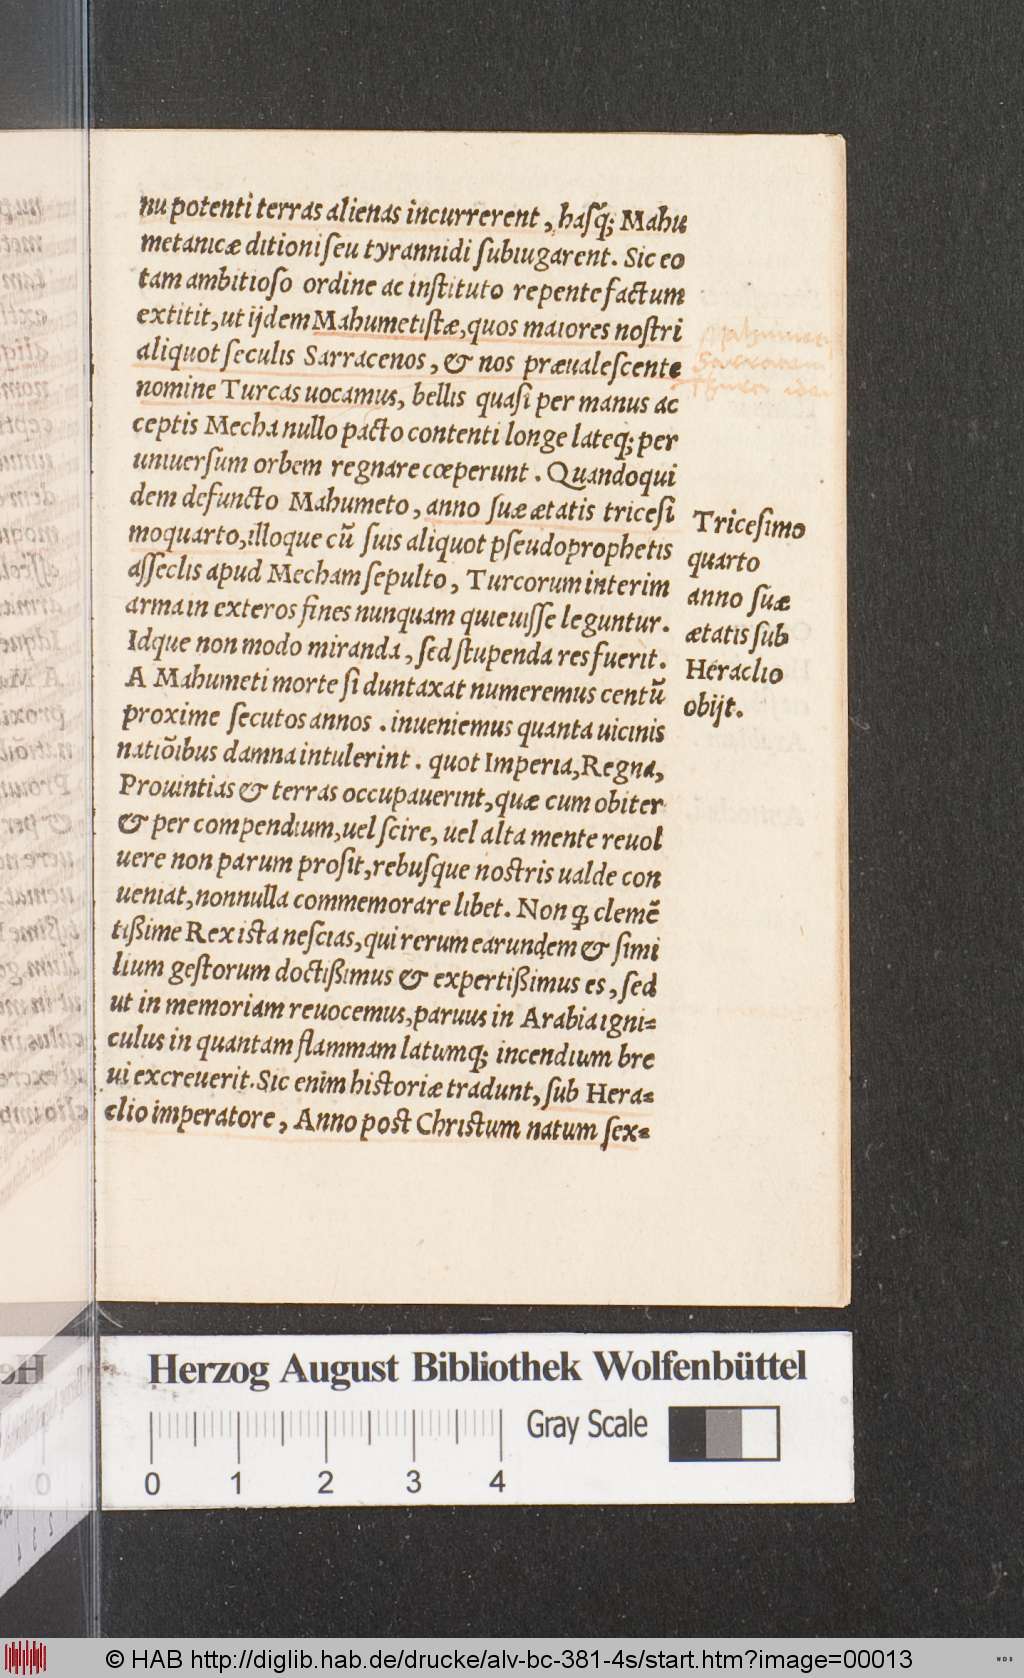 nu potenti terras alienas incurrerent, hasq́; Mahu
metanicæ ditioni seu tyrannidi subiugarent. Sic eo
tam ambitioso ordine ac instituto repente factum
extitit, ut ijdem Mahumetistæ, quos maiores nostri
aliquot seculis Sarracenos, & nos præualescente
nomine Turcas uocamus, bellis quasi per manus ac
ceptis Mecha nullo pacto contenti longe lateq; per
uniuersum orbem regnare cœperunt. Quandoqui
dem defuncto Mahumeto, anno suæ ætatis tricesi
moquarto, illoque cū suis aliquot pseudoprophetis
asseclis apud Mecham sepulto, Turcorum interim
arma in exteros fines nunquam quieuisse leguntur.
Idque non modo miranda, sed stupenda res fuerit.
A Mahumeti morte si duntaxat numeremus centū
proxime secutos annos. inueniemus quanta uicinis
natiōibus damna intulerint. quot Imperia, Regna,
Prouintias & terras occupauerint, quæ cum obiter
& per compendium, uel scire, uel alta mente reuol
uere non parum prosit, rebusque nostris ualde con
ueniat, nonnulla commemorare libet. Non ꝙ clemē
tißime Rex ista nescias, qui rerum earundem & simi
lium gestorum doctißimus & expertißimus es, sed
ut in memoriam reuocemus, paruus in Arabia igni=
culus in quantam flammam latumq; incendium bre
ui excreuerit. Sic enim historiæ tradunt, sub Hera=
clio imperatore, Anno post Christum natum sex=
Sarracen
Tricesimo
quarto
anno suæ
ætatis sub
Heraclio
obijt.
Herzog August Bibliothek Wolfenbüttel
Gray Scale
0 1 2 3 4
© HAB http://diglib.hab.de/drucke/alv-bc-381-4s/start.htm?image=00013